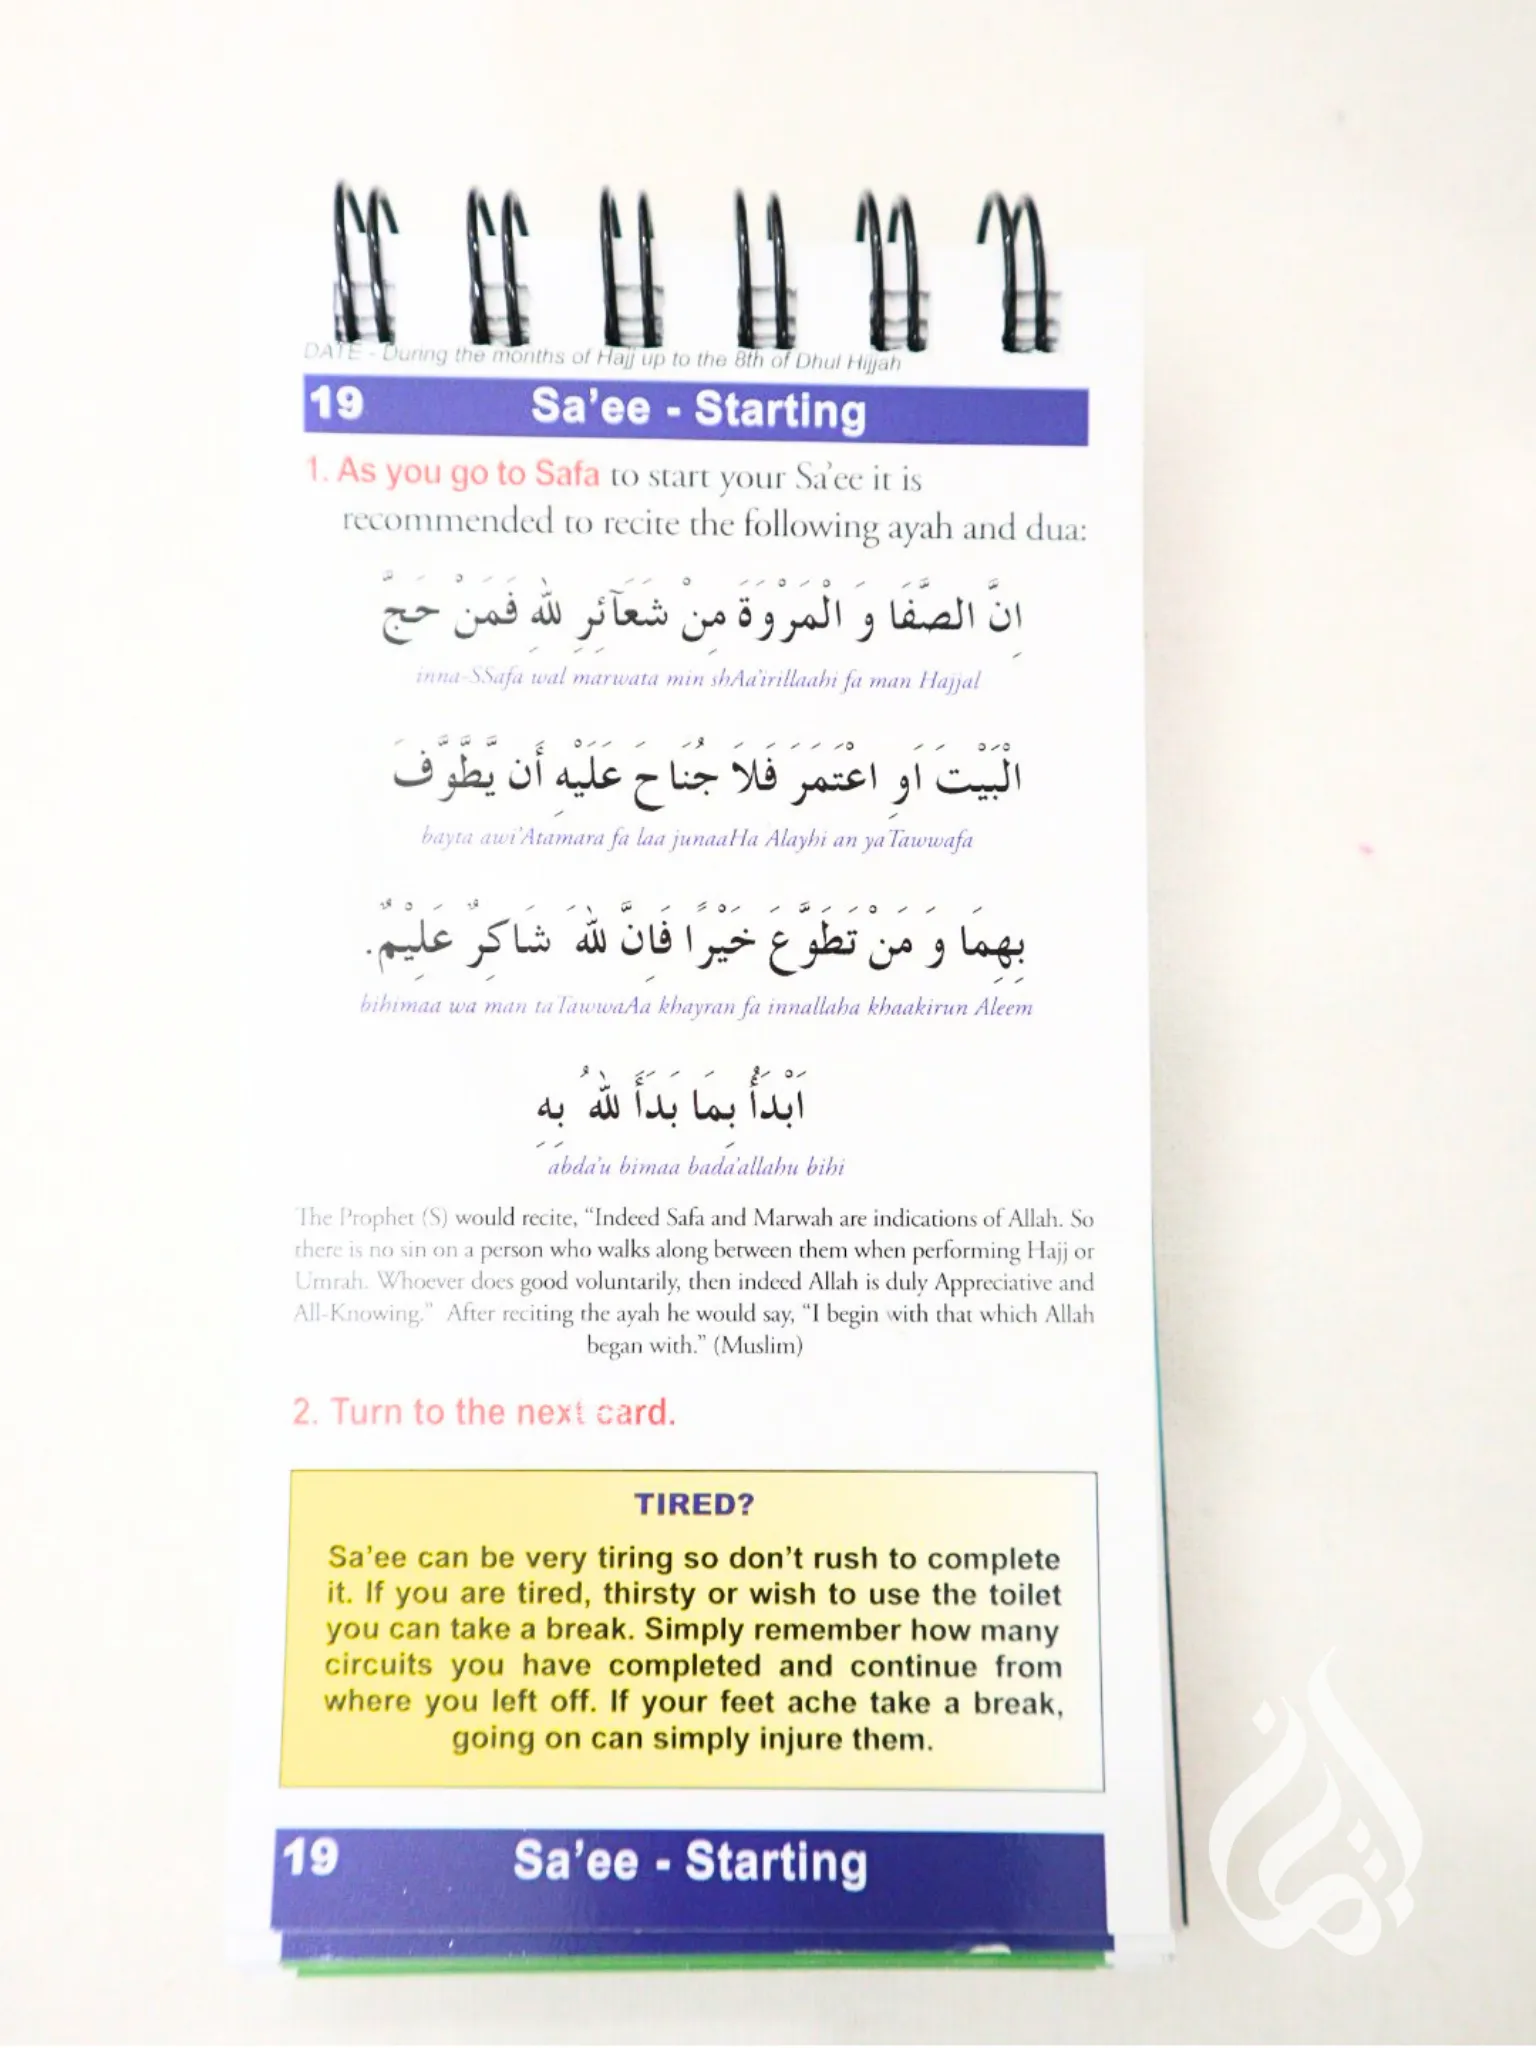 DATE - During the months of Hajj up to the 8th of Dhul Hijjah
19 Sa'ee - Starting
1. As you go to Safa to start your Sa'ee it is
recommended to recite the following ayah and dua:
اِنَّ الصَّفَا وَ الْمَرْوَةَ مِنْ شَعَآئِرِ للهِ فَمَنْ حَجَّ
inna-SSafa wal marwata min shAa'irillaahi fa man Hajjal
الْبَيْتَ اَوِ اعْتَمَرَ فَلاَ جُنَاحَ عَلَيْهِ أَن يَّطَّوَّفَ
bayta awi'Atamara fa laa junaaHa Alayhi an yaTawwafa
بِهِمَا وَ مَنْ تَطَوَّعَ خَيْرًا فَاِنَّ للهَ شَاكِرٌ عَلِيْمٌ.
bihimaa wa man taTawwaAa khayran fa innallaha khaakirun Aleem
اَبْدَأُ بِمَا بَدَأَ للهُ بِهِ
abda'u bimaa bada'allahu bihi
The Prophet (S) would recite, “Indeed Safa and Marwah are indications of Allah. So
there is no sin on a person who walks along between them when performing Hajj or
Umrah. Whoever does good voluntarily, then indeed Allah is duly Appreciative and
All-Knowing.” After reciting the ayah he would say, “I begin with that which Allah
began with.” (Muslim)
2. Turn to the next card.
TIRED?
Sa'ee can be very tiring so don't rush to complete
it. If you are tired, thirsty or wish to use the toilet
you can take a break. Simply remember how many
circuits you have completed and continue from
where you left off. If your feet ache take a break,
going on can simply injure them.
19 Sa'ee - Starting